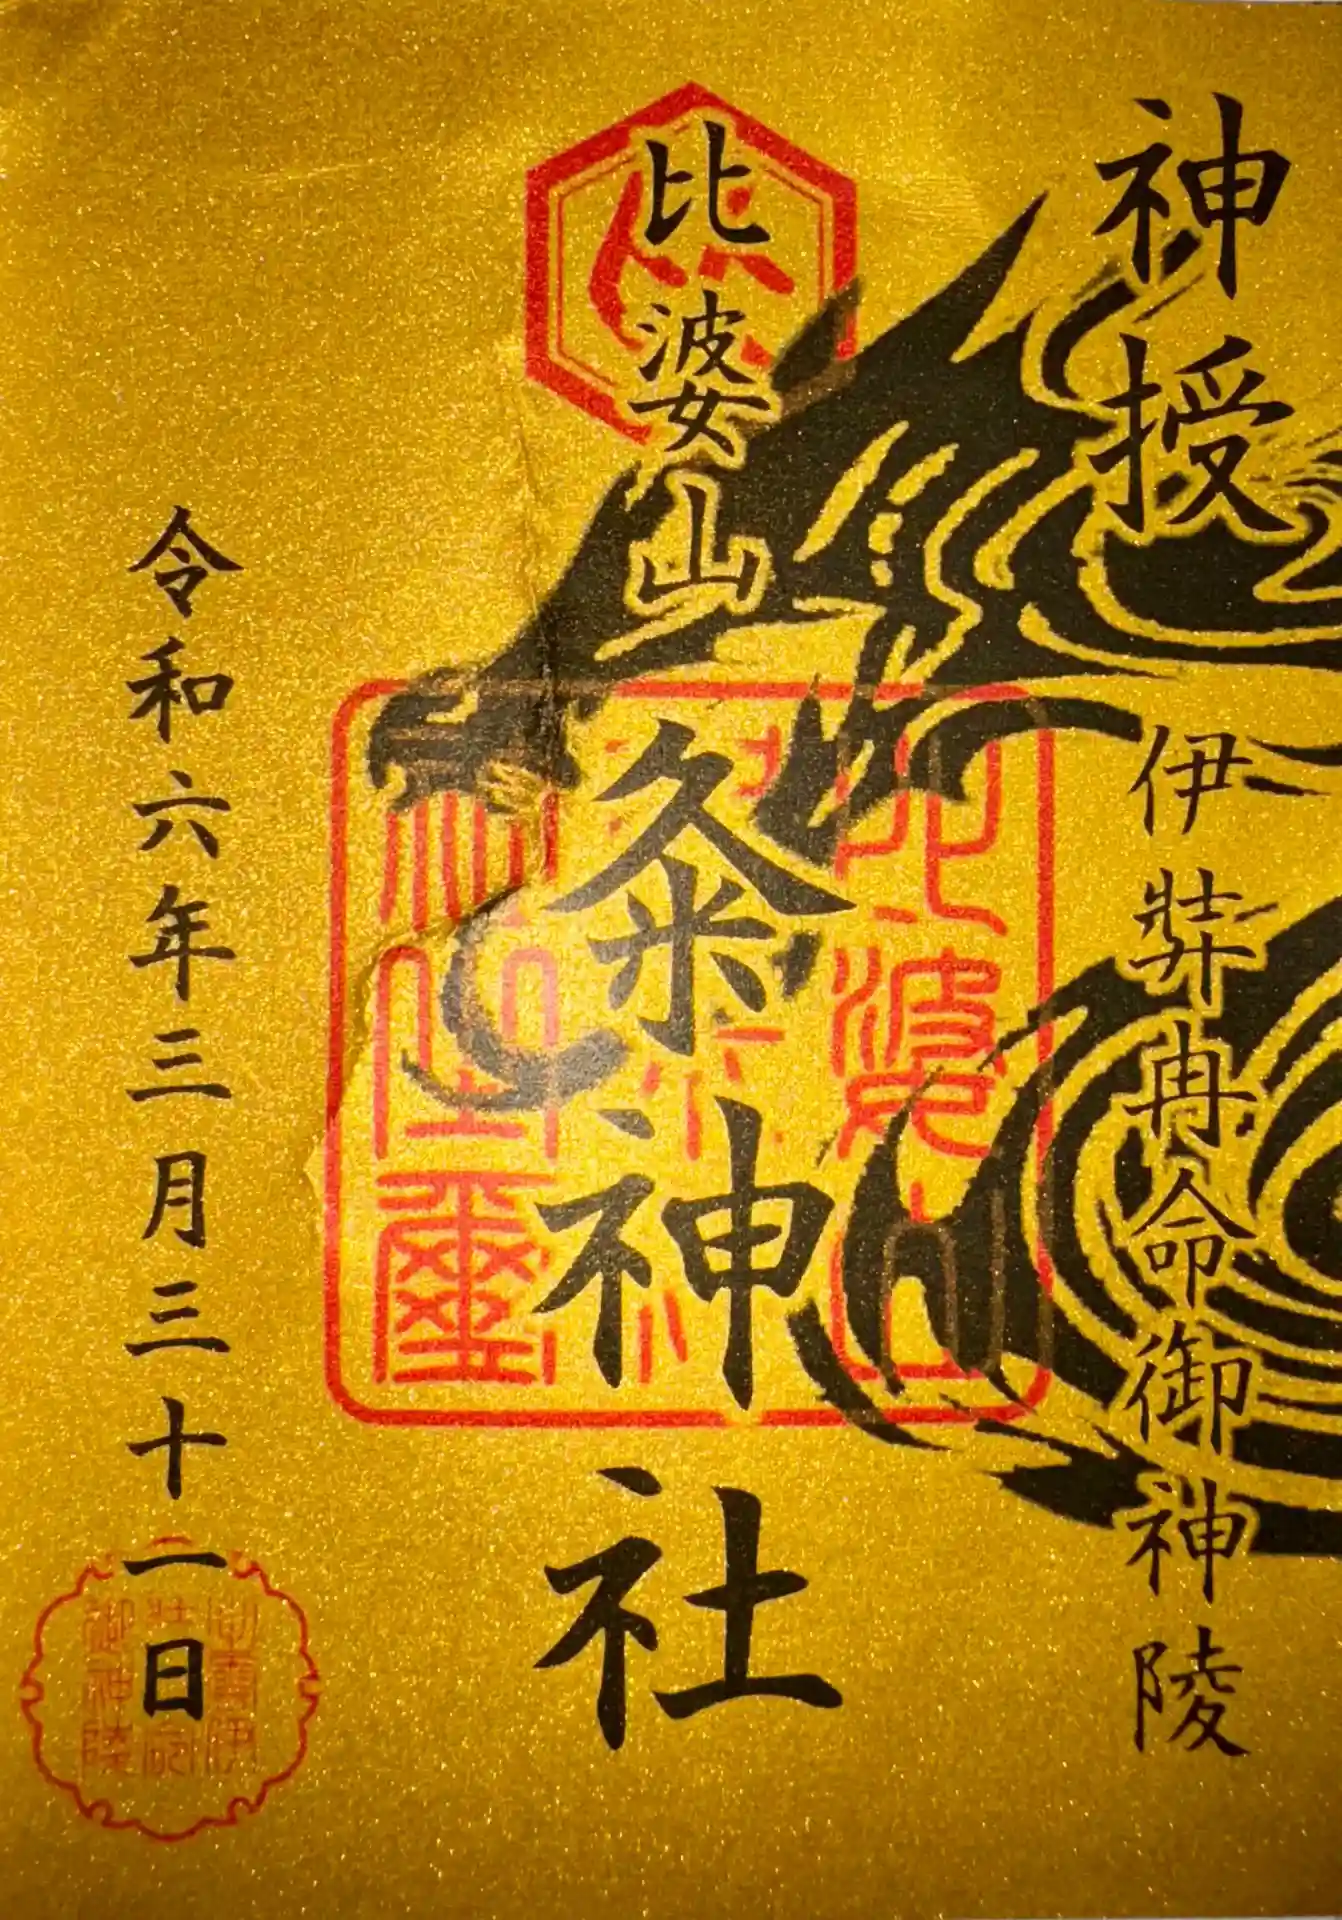 神授
伊弉冉命御神陵
比婆山
粂神社
令和六年三月三十一日
比婆山
神社璽
御神陵